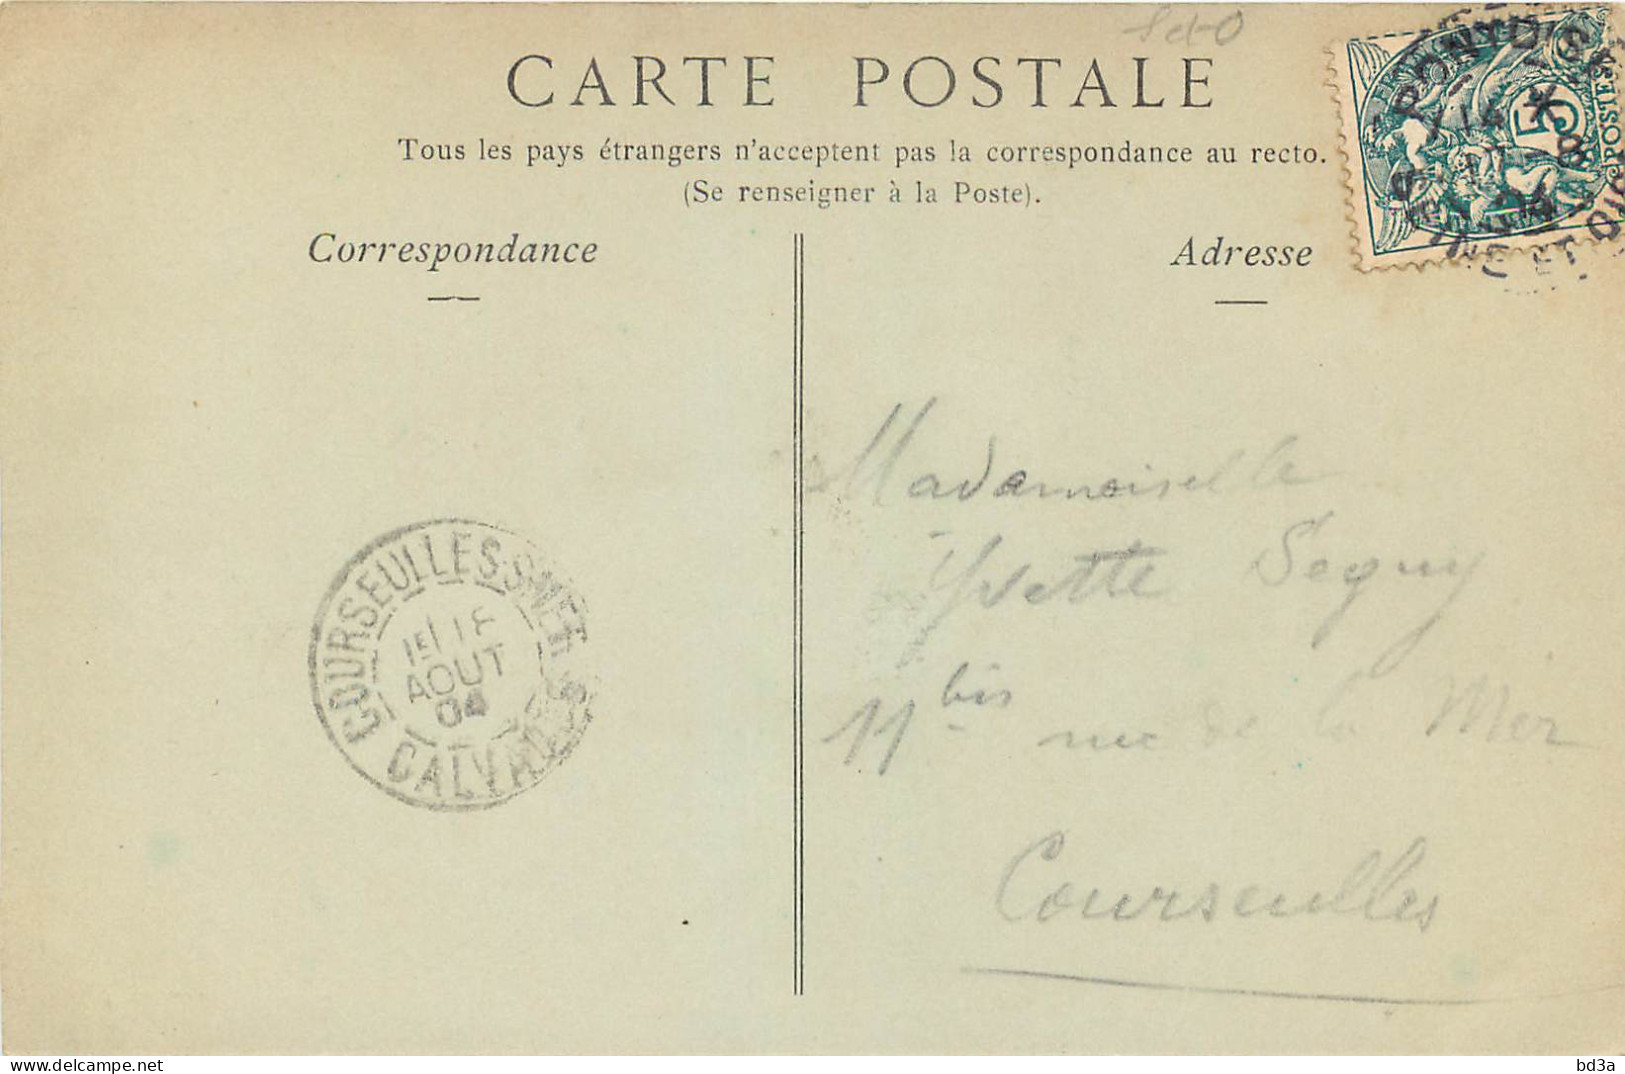 S et O
CARTE POSTALE
Tous les pays étrangers n'acceptent pas la correspondance au recto.
(Se renseigner à la Poste).
Correspondance
Adresse
POSTES
5
Mademoiselle
Yvette Seguy
11 bis rue de la Mer
Courseulles
COURSEULLES S MER
1E
AOUT
04
CALVADOS
delcampe.net
bd3a